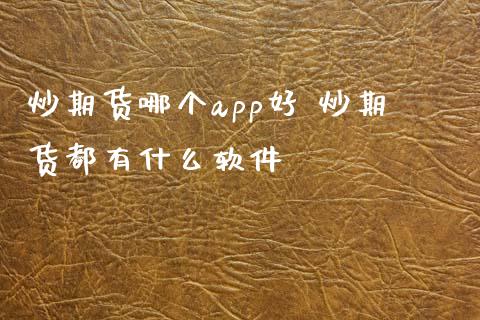 炒期货哪个app好 炒期
货都有什么软件